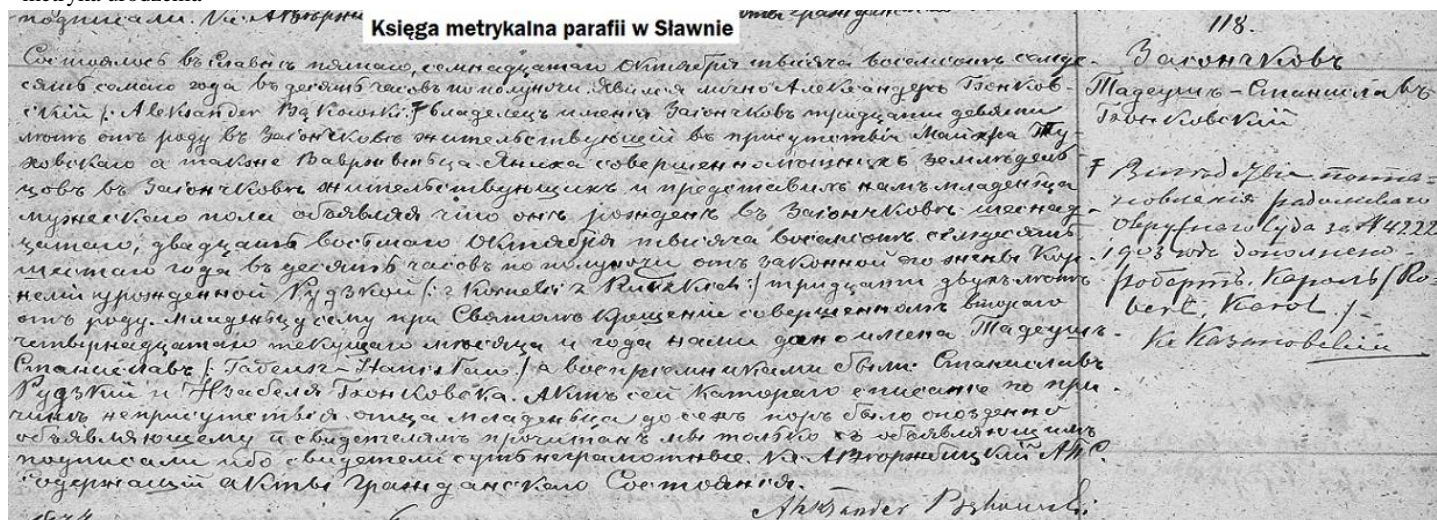 метryka urodzenia
подписали. Кс.
Księga metrykalna parafii w Sławnie
118.
Загончковъ
Тадеушъ-Станиславъ
Бонковскій
Состоялось въ Славнѣ пятаго, семнадцатаго Октября тысяча восемсотъ семде-
сятъ седмаго года въ десять часовъ по полуночи. Явился лично Александръ Бонков-
скій /: Aleksander Bąkowski :/ владелецъ имѣнія Загончковъ тридцати девяти
лѣтъ отъ роду въ Загончковѣ жительствующій въ присутствіи
а также Яника совершеннолѣтнихъ земледѣль-
цовъ въ Загончковѣ жительствующихъ и представилъ намъ младенца
мужескаго пола объявляя что онъ рожденъ въ Загончковѣ шеснад-
цатаго, двадцать восьмаго Октября тысяча восемсотъ семдесятъ
шестаго года въ десять часовъ по полуночи отъ законной его жены Кор-
неліи урожденной Рудзкой /: z Kornelii z Rudzkich :/ тридцати двухъ лѣтъ
отъ роду. Младенцу сему при Святомъ Крещеніи совершенномъ втораго
четырнадцатаго текущаго мѣсяца и года нами дано имена Тадеушъ-
Станиславъ /: Tadeusz-Stanisław :/ а воспріемниками были: Станиславъ
Рудзкій и Изабеля Бонковска. Актъ сей катораго списаніе по при-
чинѣ неприсутствія отца младенца до сехъ поръ было опозденно
объявляющему и свидетелямъ прочитанъ мы только съ объявляющимъ
подписали ибо свидетели суть неграмотные. Кс.
Содержащій акты Гражданскаго Состоянія.
Aleksander Bąkowski.
постa-
новленія радомскаго
Окружнаго Суда за N 4222
1903 года дополнено
Робертъ, Кароль /Ro-
bert, Karol./
Кс Казимовскій